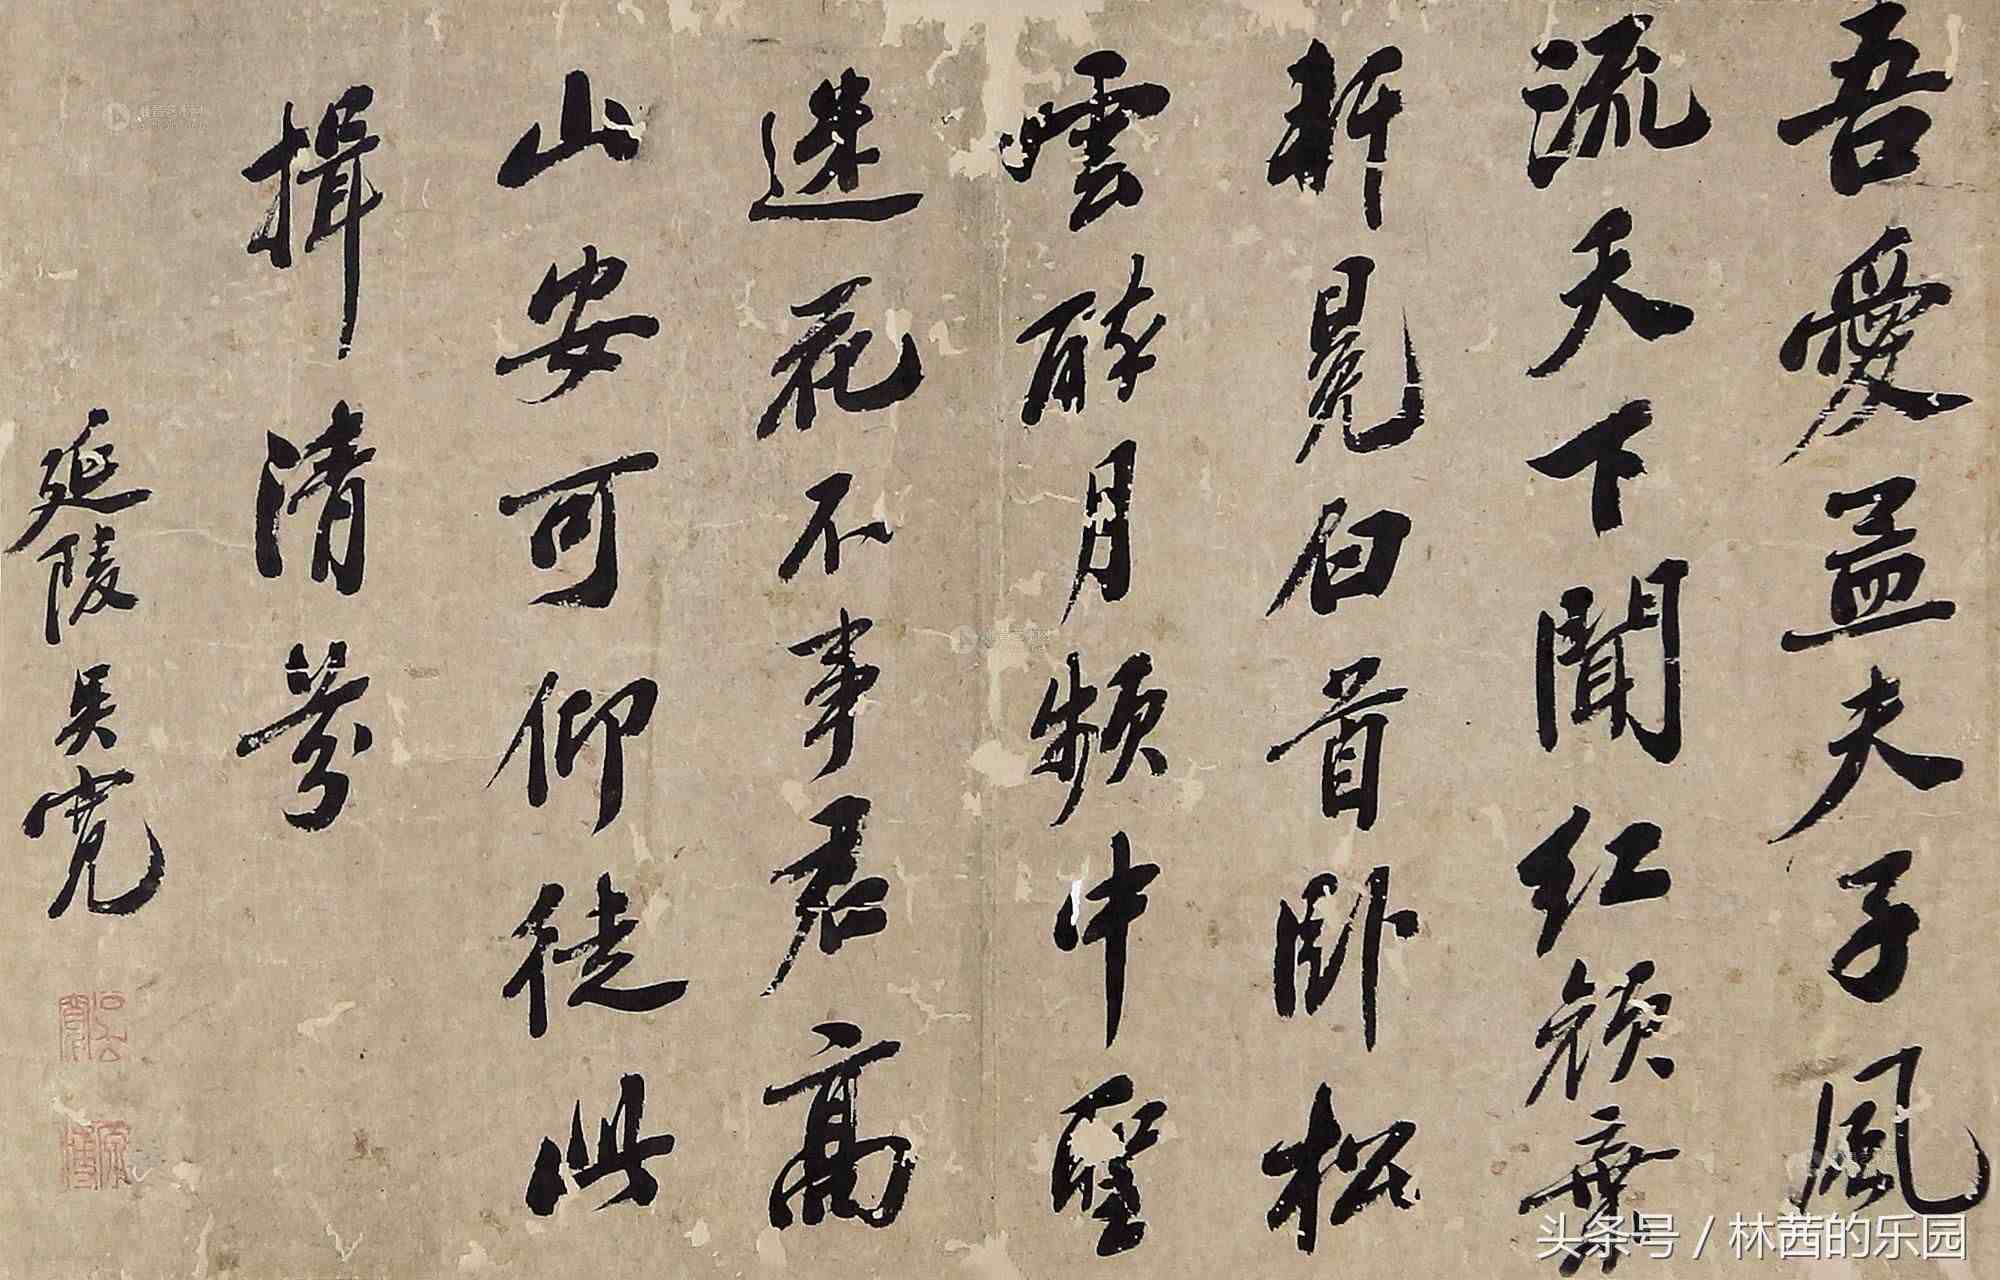 吾愛孟夫子風
流天下聞紅顏棄
軒冕白首卧松
雲醉月頻中聖
迷花不事君高
山安可仰徒此
揖清芬
延陵吳寬
吳寬
原博
头条号 / 林茜的乐园